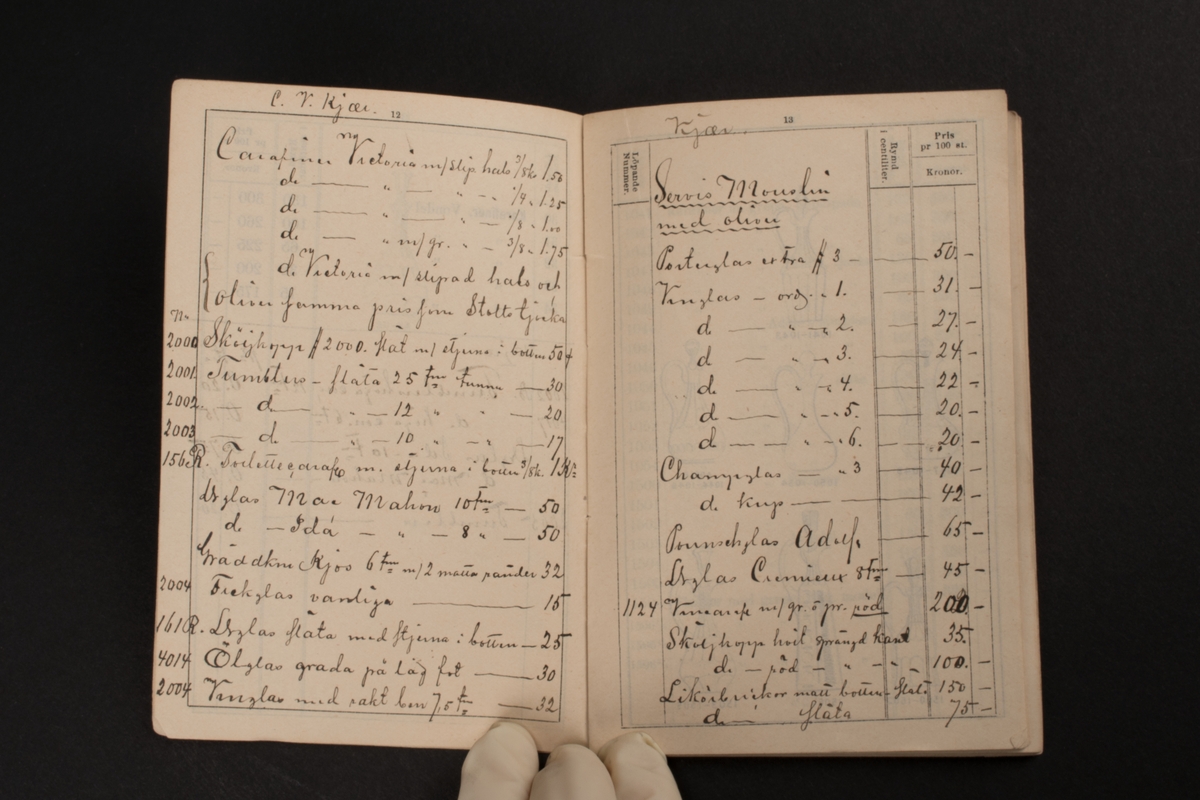 C. V. Kjær.
12
ny
Carafiner Victoria m/slip. hals 3/8k. 1.50
do — „ — „ - 1/4 „ 1.25
do — „ — „ - 1/8 „ 1.00
do — „ m/gr. „ - 3/8 „ 1.75
ny
do Victoria m/ slipad hals och
oliver samma pris som Stolts tjocka
No
2000 Sköljkopp # 2000. slät m/ stjerna i botten 50
2001. Tumblers - släta 25 tm tunna — 30
2002. do — „ — 12 „ „ - 20
2003 do — „ — 10 „ - „ — 17
156 R. Toilettecaraff m. stjerna i botten 3/8k. 1 Kr
Ölglas Mac Mahon 10 tm — 50
do — Ida — „ — 8 „ — 50
Gräddkm Kjös 6 tm m/2 matta ränder 32
2004 Fickglas vanliga — 15
161 R. Ölglas släta med stjerna i botten — 25
4014 Ölglas grada på låg fot — 30
2004 Vinglas med rakt ben 7,5 tm — 32
Kjær.
13
Löpande Nummer.
Rymd i centiliter.
Pris pr 100 st.
Kronor.
Servis Mouslin
med oliver
Porterglas extra # 3 — 50. -
Vinglas - ord. „ 1. — 31. -
do — „ - „ 2. — 27. -
do — „ - „ 3. — 24. -
do — „ - „ 4. — 22 -
do — „ - „ 5. — 20. -
do — „ - „ 6. — 20. -
Champglas — „ 3 — 40 -
do kup — 42 -
Pounschglas Adolf. — 65 -
Ölglas Cremieux 8 tm — 45 -
1124 Vincaraff m/gr. o pr. röd 200 -
Sköljkopp hvit sprängd kant 35. -
do - röd - „ - „ - „ 100. -
Likörbrickor matt botten - slät 150 -
do släta 75 -